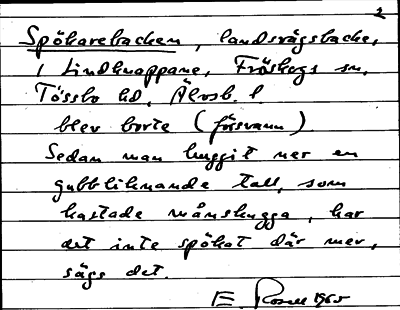 2
Spökarebacken, landsvägsbacke,
i Lindknappane, Fröskogs sn,
Tössbo hd, Älvsb. l
blev borte (försvann)
Sedan man huggit ner en
gubbliknande tall, som
kastade månskugga, har
det inte spökat där mer,
sägs det.
E. Rosell 1965